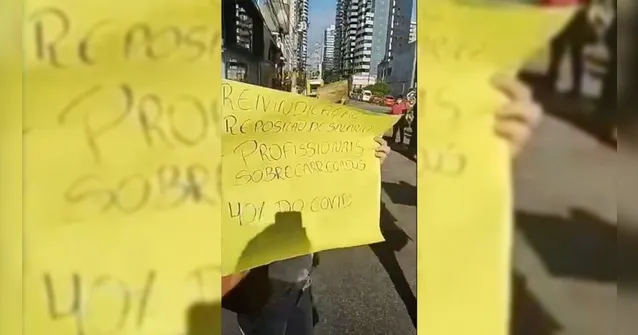 REIVINDICAÇÃO
REPOSIÇÃO DE SALÁRIO
PROFISSIONAIS
SOBRECARREGADOS
40% DO COVID